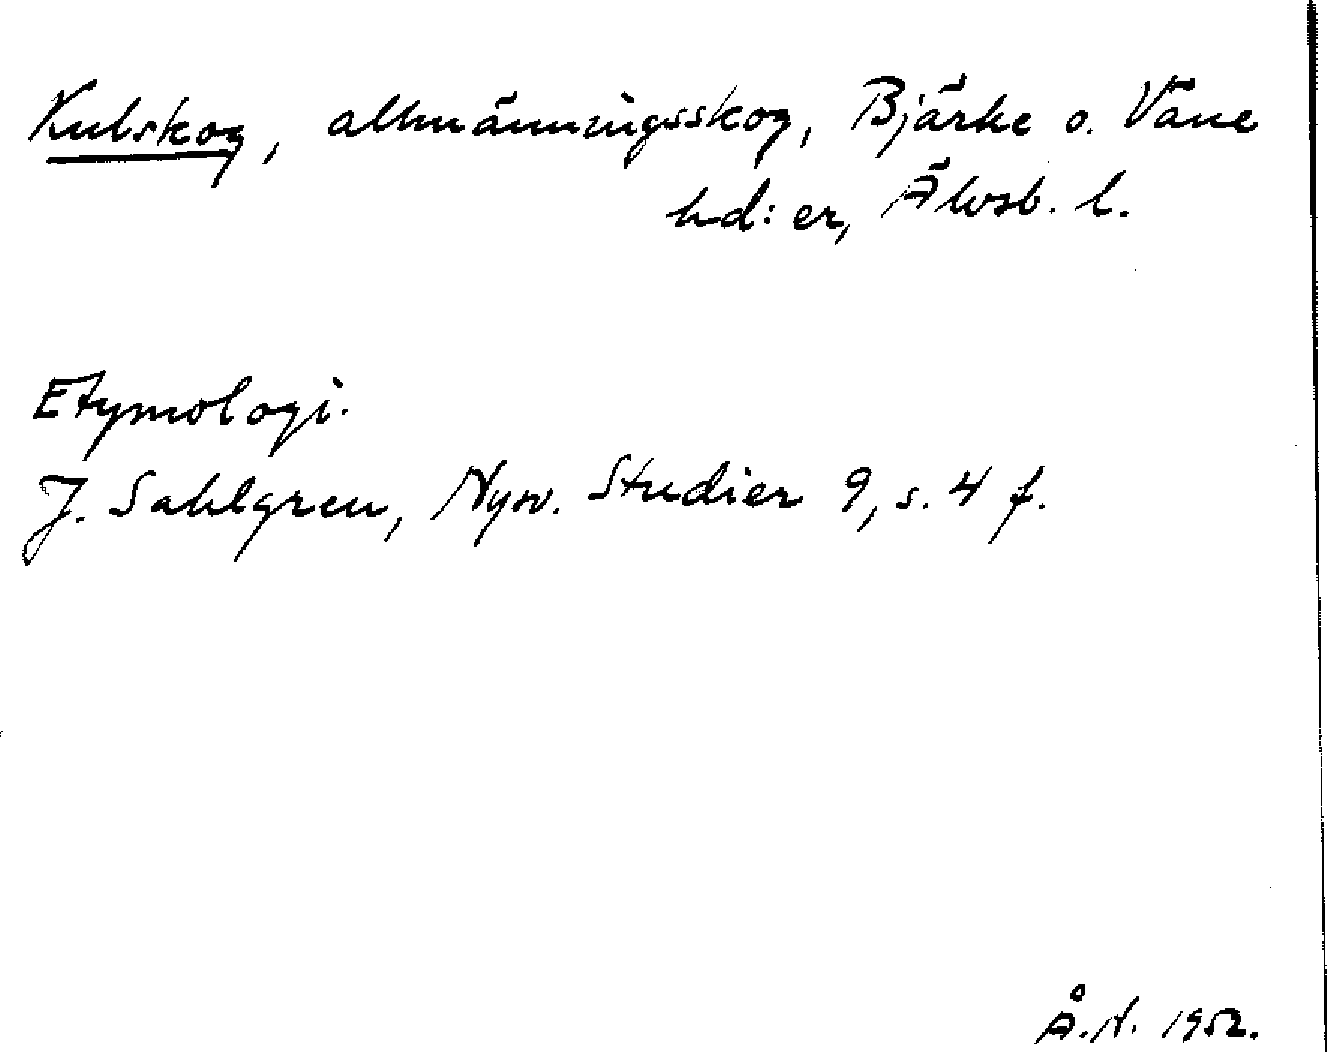 Kulskog, allmänningsskog, Bjärke o. Väne
hd:er, Älvsb. l.
Etymologi.
J. Sahlgren, Nysv. Studier 9, s. 4 f.
Å.N. 1952.